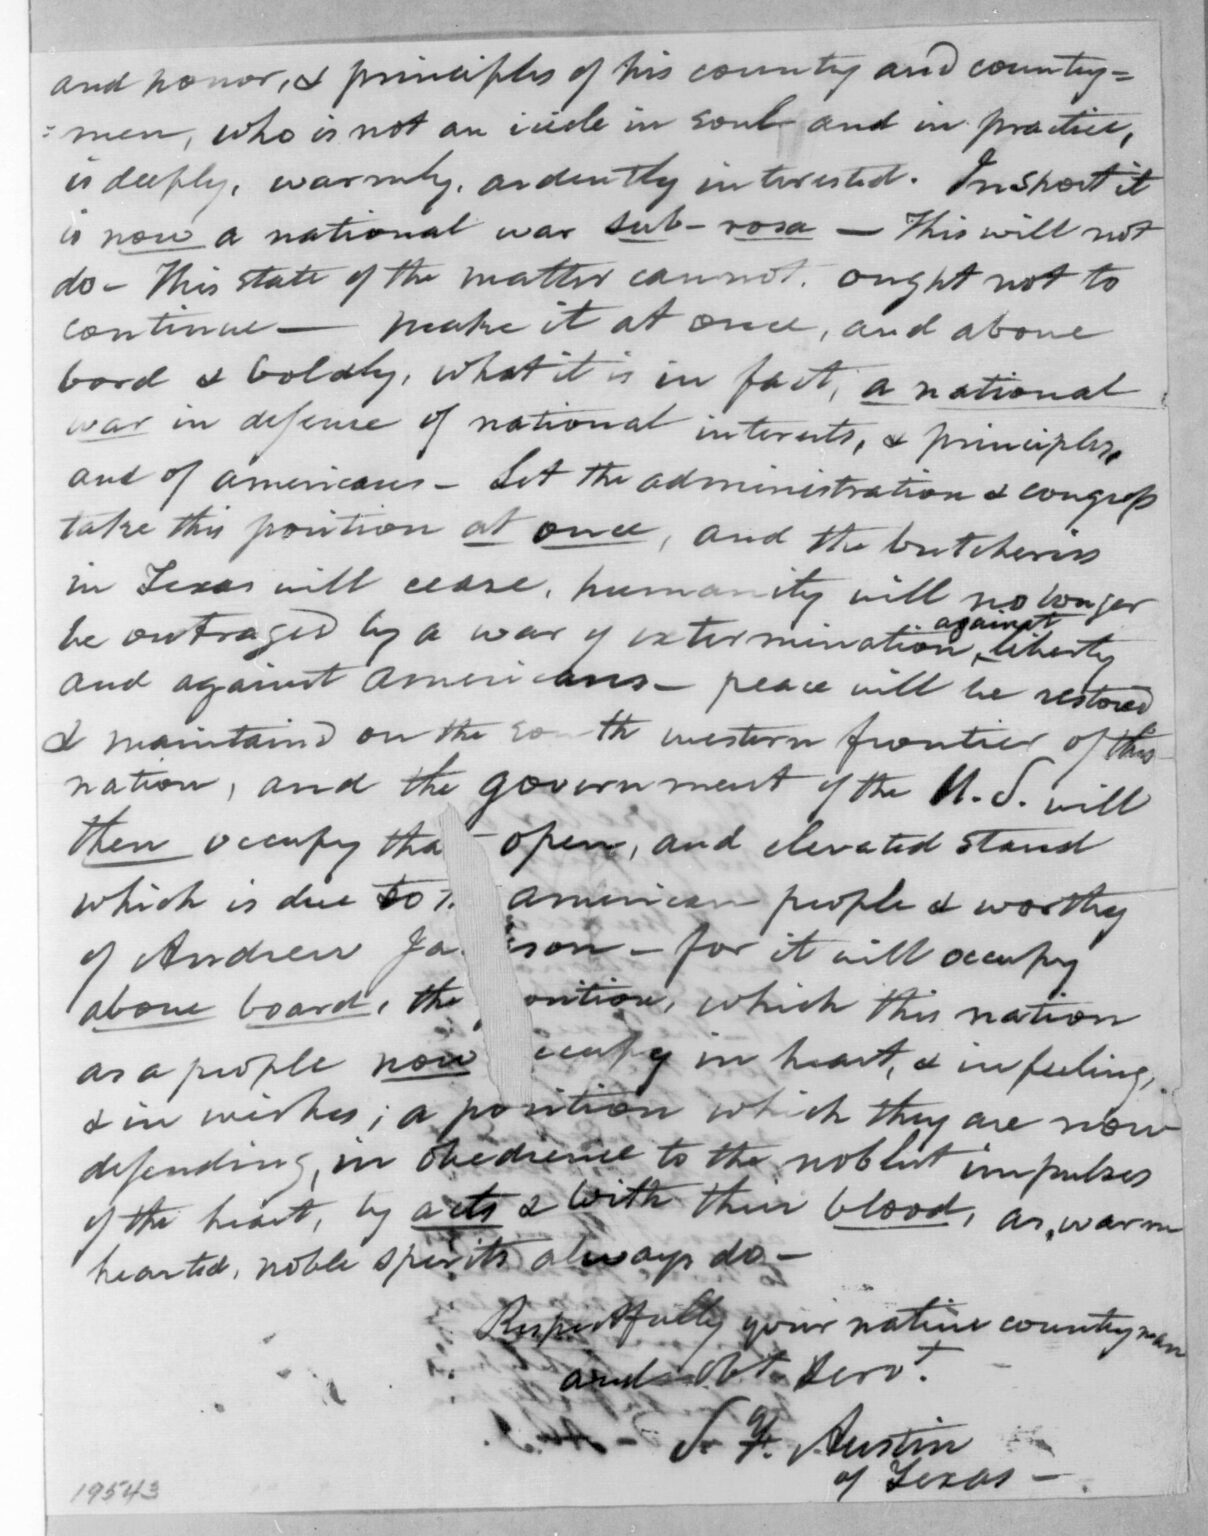 and honor, & principles of his country and country=
=men, who is not an icicle in soul and in practice,
is deeply, warmly, ardently interested. In short it
is now a national war sub-rosa — This will not
do – This state of the matter cannot. ought not to
continue — make it at once, and above
bord & boldly, what it is in fact, a national
war in defense of national interests, & principles,
and of americans – Let the administration & congress
take this position at once, and the butcheries
in Texas will cease, humanity will no longer
be outraged by a war of extermination against liberty
and against americans – peace will be restored
& maintaind on the south western frontier of this
nation, and the government of the U.S. will
then occupy tha open, and elevated stand
which is due to american people & worthy
of Andrew Ja son – for it will occupy
above board, the osition, which this nation
as a people now occupy in heart, & in feeling,
& in wishes; a position which they are now
defending, in obedience to the noblest impulses
of the heart, by acts & with their blood, as, warm
hearted, noble spirits always do –
Respectfully your native countryman
and Obt. Servt.
S. F. Austin
of Texas –
19543